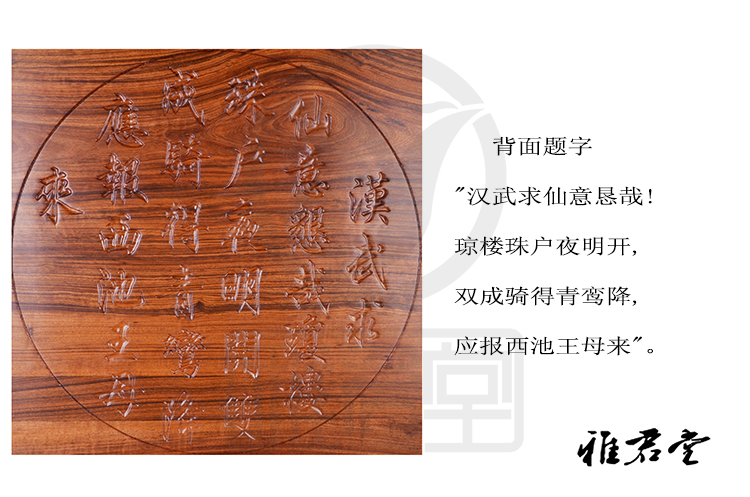 漢武求
仙意懇哉瓊樓
珠户夜明開雙
成騎得青鸞降
應報西池王母
來
背面题字
"汉武求仙意恳哉!
琼楼珠户夜明开,
双成骑得青鸾降,
应报西池王母来"。
堂
雅君堂